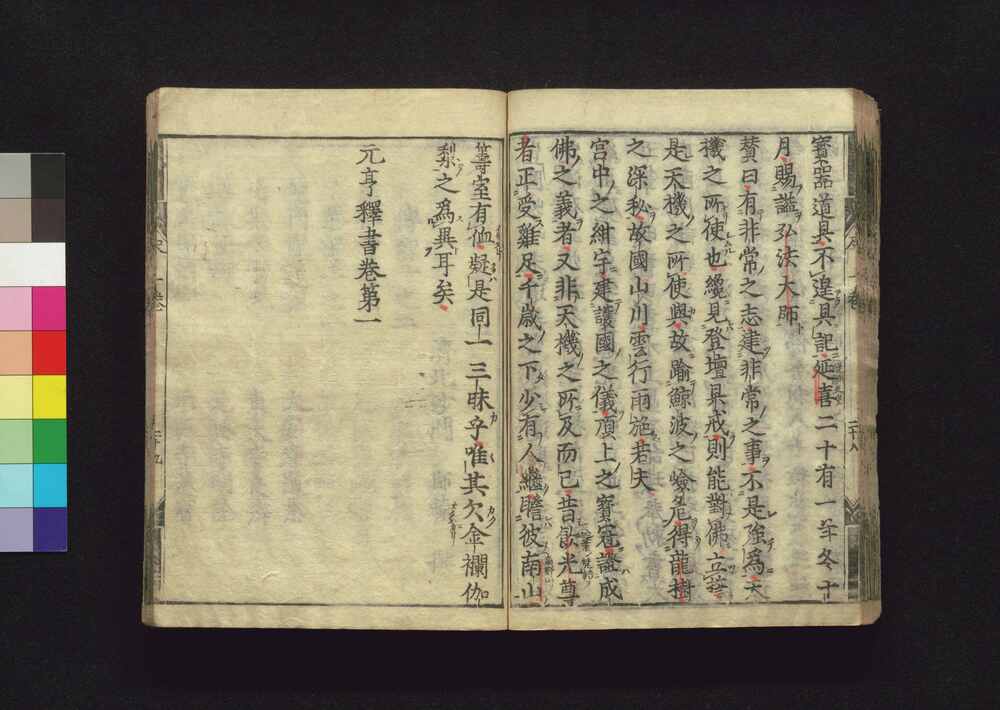 寳器道具不遑具記延喜二十有一年冬十
月賜諡弘法大師
賛曰有非常之志建非常之事不是強為天
機之所使也纔見登壇具戒則能對佛立誓
是天機之所使與故踰鯨波之嶮危得龍樹
之深秘故國山川雲行雨施若夫
宮中之紺宇建讓國之儀頂上之寳冠證成
佛之義者又非天機之所及而已昔飮光尊
者正受雞足千歳之下少有人繼瞻彼南山
等室有侐疑是同一三昧乎唯其欠金襴伽
梨之爲異耳矣
元亨釋書卷第一